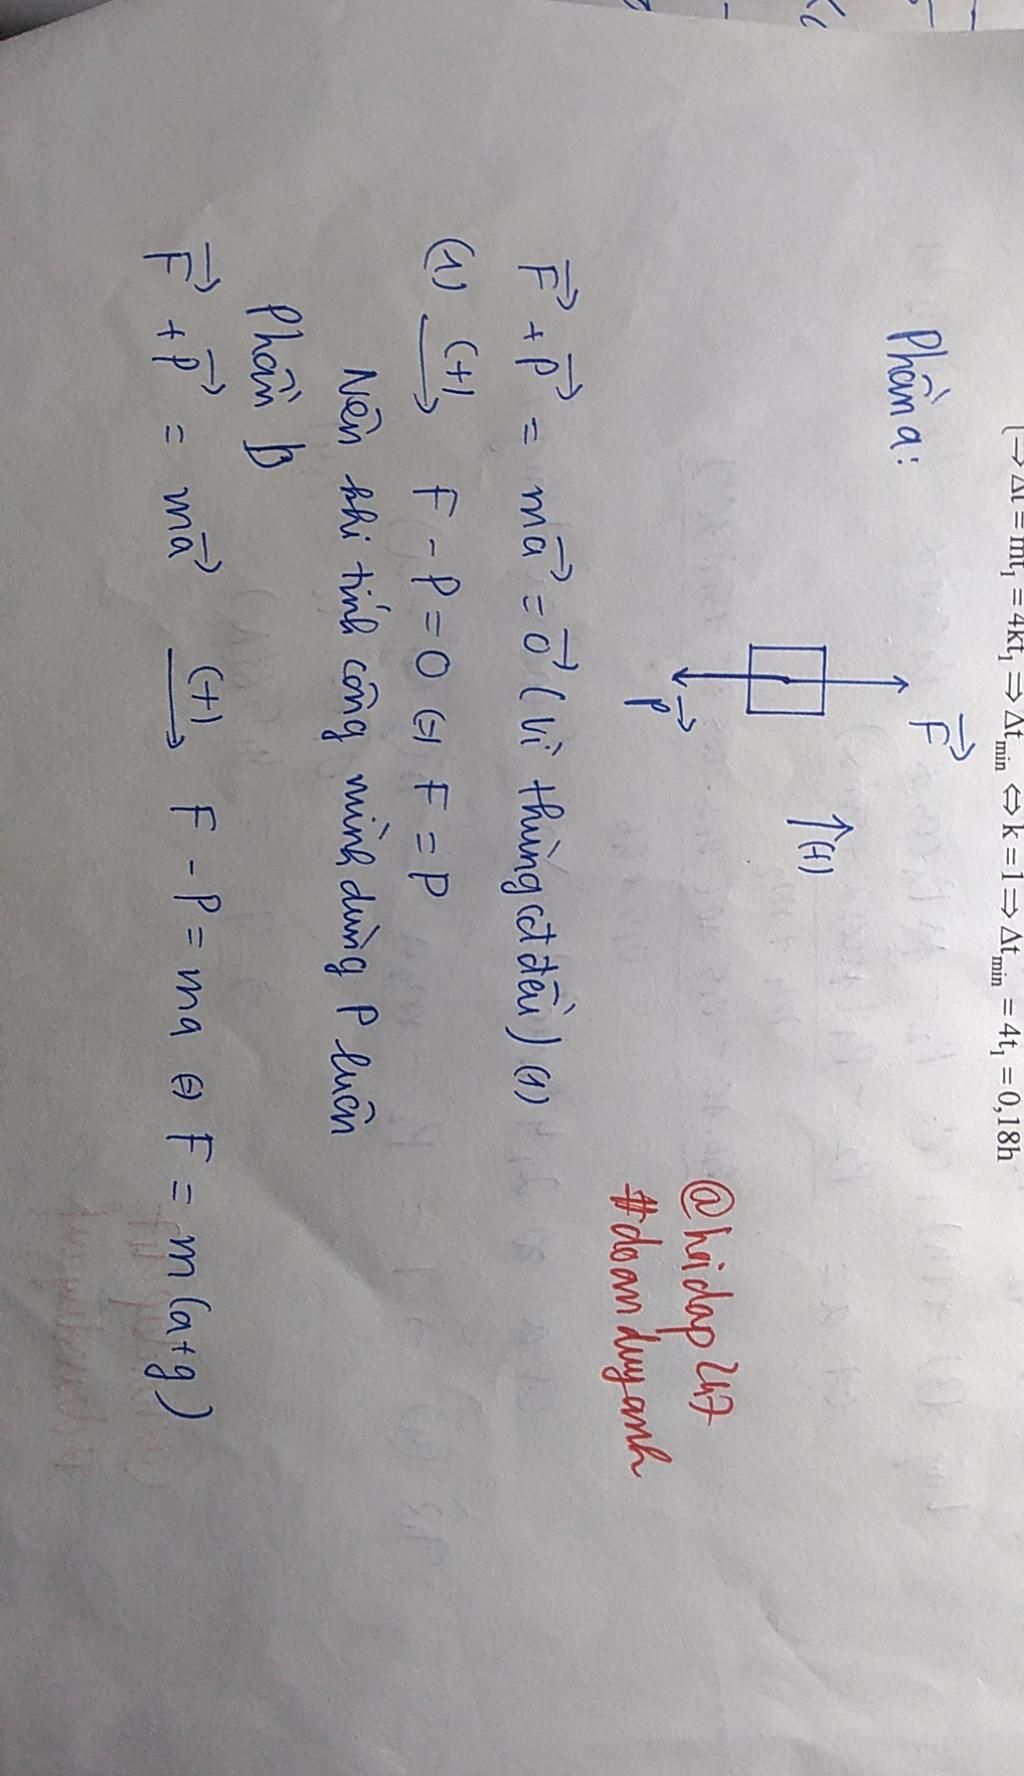 ⇒ Δt = mt₁ = 4kt₁ ⇒ Δt_min ⇔ k = 1 ⇒ Δt_min = 4t₁ = 0,18h
Phần a:
F⃗
↑(+)
P⃗
@hoidap247
#doanduyanh
F⃗ + P⃗ = ma⃗ = 0⃗ (vì thùng cđ đều) (1)
(1) (+)→ F - P = 0 ⇔ F = P
Nên khi tính công mình dùng P luôn
Phần b
F⃗ + P⃗ = ma⃗ (+)→ F - P = ma ⇔ F = m(a+g)